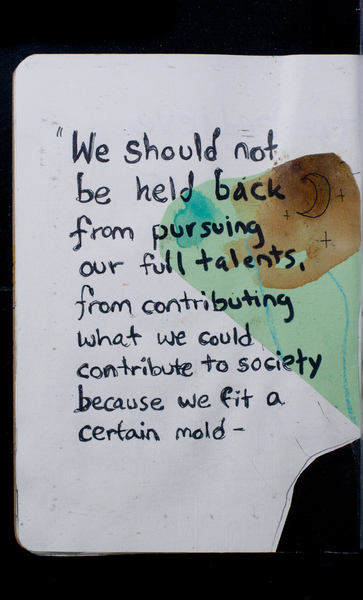 "We should not
be held back
from pursuing
our full talents,
from contributing
what we could
contribute to society
because we fit a
certain mold -